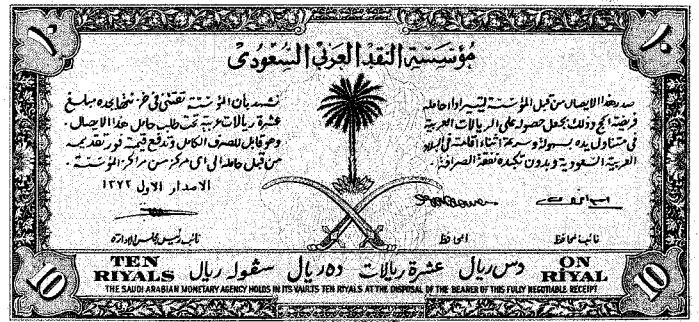 ١٠
١٠
مؤسسة النقد العربي السعودي
صدر هذا الايصال من قبل المؤسسة لتيسير اداء حامله
فريضة الحج وذلك بجعل حصوله على الريالات العربية
في متناول يده بسهولة وسرعة اثناء اقامته في البلاد
العربية السعودية وبدون تكبده نفقة الصرافة.
نشهد بان المؤسسة تقتنى في خزائنها بجده مبلغ
عشرة ريالات عربية تحت طلب حامل هذا الايصال.
وهو قابل للصرف الكامل وتدفع قيمته فور تقديمه
من قبل حامله الى اى مركز من مراكز المؤسسة.
الاصدار الاول ١٣٧٢
نائب المحافظ
المحافظ
نائب رئيس مجلس الادارة
TEN
RIYALS
دس ريال عشرة ريالات ده ريال سڤوله ريال
ON
RIYAL
THE SAUDI ARABIAN MONETARY AGENCY HOLDS IN ITS VAULTS TEN RIYALS AT THE DISPOSAL OF THE BEARER OF THIS FULLY NEGOTIABLE RECEIPT
10
10